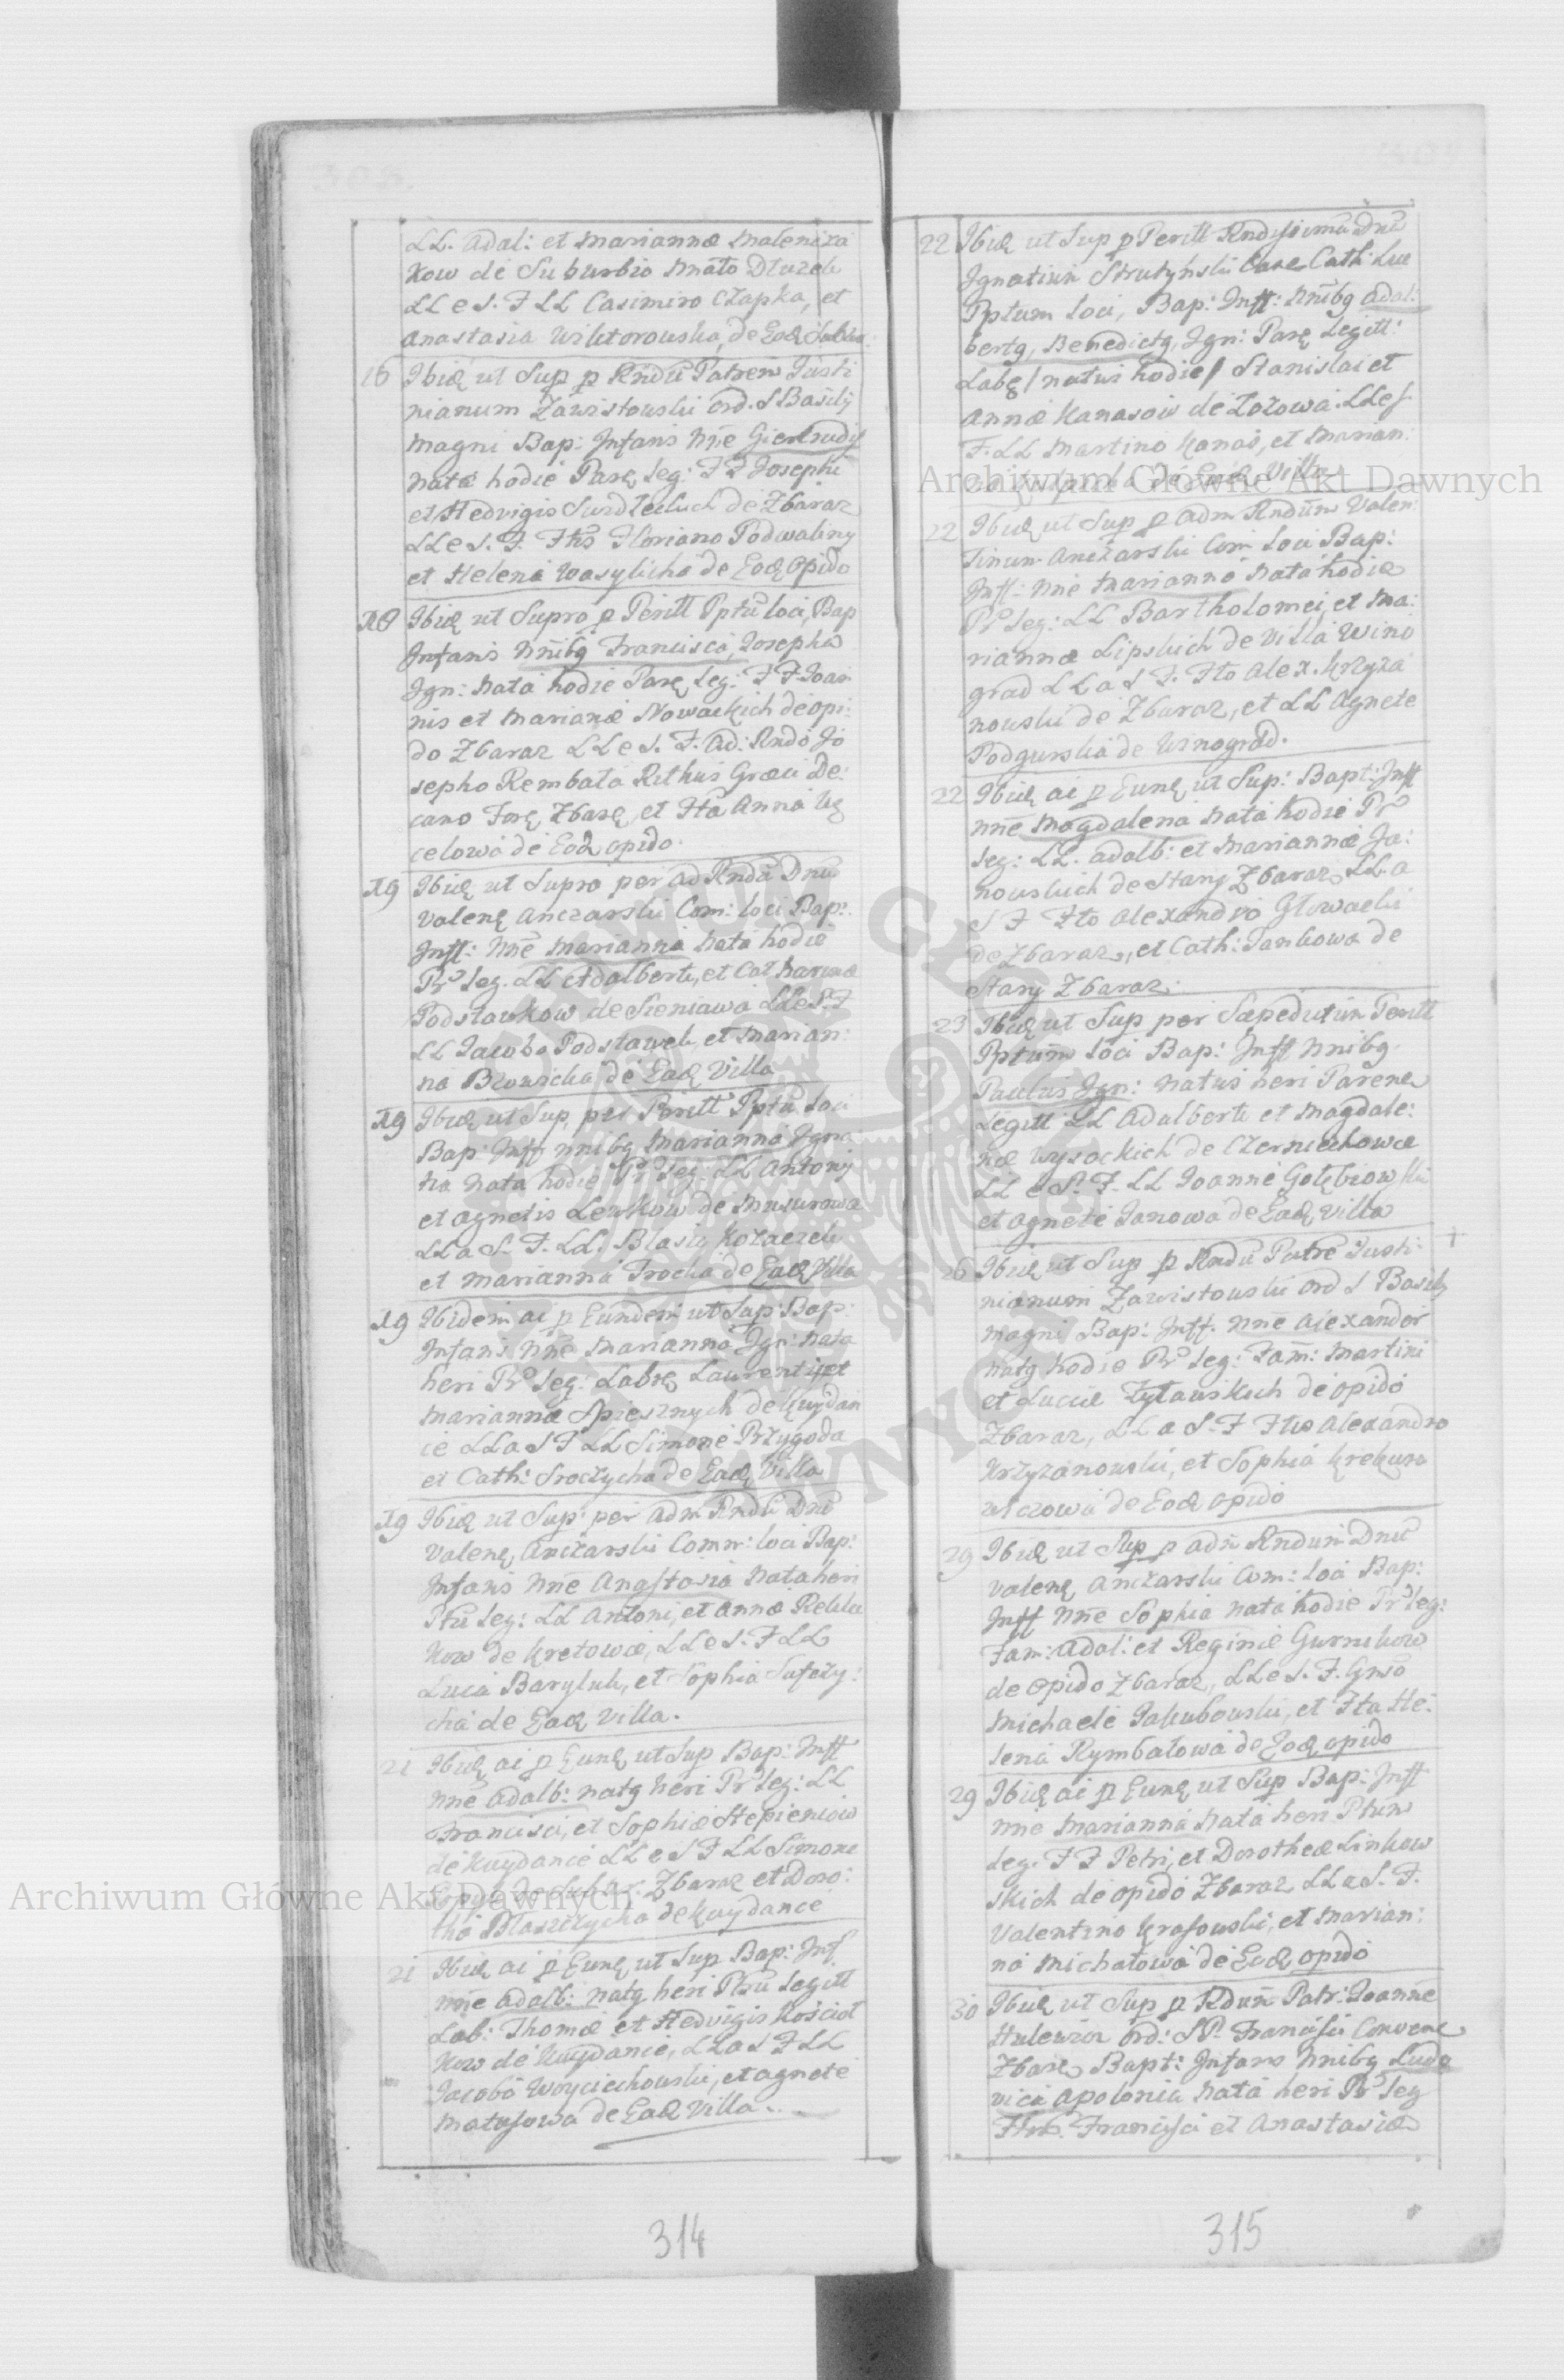 LL. Adal: et Mariannæ Maleniza
kow de Suburbio Nnato Dluzek
LLe S. F LL Casimiro Czapka, et
Anastasia Wiktorowska, de Ead
16 Ibid ut Sup p Rndu Patrem Justi
nianum Zawistowski Ord. S Basilij
Magni Bap: Infans Nne Giertrudis
Nata hodie Par Leg: FF Josephi
et Hedvigis de Zbaraz
LLe S. F. Ftis Floriano Podwaliny
et Helena Wasylicha de Eod Opido
18 Ibid ut Supra p Perill Pptu loci, Bap
Infans Nnibg Francisca, Josepha
Ign: Nata hodie Par Leg: FF Joan
nis et Mariannæ Nowackich de opi:
do Zbaraz LLe S. F. Ad: Rndo Jo
sepho Rembala Rithus Græci De:
cano Zbar, et Fta Anna
celowa de Eod opido.
19 Ibid ut Supra per Ad Rndu Dnu
Valen Anczarski Com: loci Bap:
Inff: Nne Marianna Nata hodie
Pr Leg. LL Adalberti, et Catharinæ
Podstawkow de Sieniawa LLe S. F
LL Jacobo Podstawek, et Marian:
na de Ead Villa
19 Ibid ut Sup, per Perill Pptu Loci
Bap: Inff Nnibg Marianna Igna:
na Nata hodie Pr Leg: LL Antonij
et Agnetis Lewkow de Musurowa
LLa S. F. LL. Blasio Kolaczek
et Marianna Trocha de Ead Villa
19 Ibidem ai p Eundem ut Sup: Bap:
Infans Nne Marianna Ign: Nata
heri Pr Leg: Labr Laurentij et
Mariannæ Spiesznych de Kuydan
ie LLa S F LL Simone Przygoda
et Cath: Sroczycha de Ead Villa
19 Ibid ut Sup: per Adm Rndu Dnu
Valen Anczarski Comm: loci Bap:
Infans Nne Anastasia Nata heri
Ptu Leg: LL Antoni, et Annæ
kow de Kretowce, LLe S. F LL
Luca Baryluk, et Sophia
cha de Ead Villa.
21 Ibid ai p Eund ut Sup Bap: Inff
Nne Adalb: Natg heri Pr Leg: LL
Francisci, et Sophiæ Stepieniow
de Kuydance LLe S F LL Simone
Zbaraz et Doro:
tha Blaszczycha de Kuydance
21 Ibid ai p Eund ut Sup Bap: Inf.
Nne Adalb: Natg heri Ptu Legitt
Lab: Thomæ et Hedvigis Kosciol
kow de Kuydance, LLa S F LL
Jacobo Woyciechowski, et Agnete
Matusowa de Ead Villa.
314
22 Ibid ut Sup p Perill Rndissimu Dnu
Ignatium Strutynski Cath: Luc
Pptum Loci, Bap: Inff: Nnibg Adal:
bertg, Benedictg, Ign: Par Legitt:
Lab / natus hodie / Stanislai et
Annæ Kanasow de Lozowa. LLe S.
F. LL Martino Kanas, et Marian:
na de Ead Villa
22 Ibid ut Sup p Adm Rndum Valen:
tinum Anczarski Com Loci Bap:
Inff: Nne Marianna Nata hodie
Pr Leg: LL Bartholomei, et Ma:
riannæ Lipskich de Villa Wino
grad LLa S F. Fto Alex. Krzyza
nowski de Zbaraz, et LL Agnete
Podgurska de Winograd.
22 Ibid ai p Eund ut Sup: Bapt: Inff
Nne Magdalena Nata hodie Pr
Leg: LL. Adalb: et Mariannæ Ja:
nowskich de Stary Zbaraz, LL a
S F Fto Alexandro Glowacki
de Zbaraz, et Cath: Jankowa de
Stary Zbaraz.
23 Ibid ut Sup per Sæpedictum Perill
Pptum Loci Bap: Inff Nnibg
Paulus Ign: natus heri Paren
Legitt LL Adalberti et Magdale:
næ Wysockich de Czerniechowce
LL e S. F. LL Joanne Golębiowski
et Agnete Janowa de Ead Villa
26 Ibid ut Sup p Rndu Patre Justi
nianum Zawistowski Ord S Basily
Magni Bap: Inff. Nne Alexander
natg hodie Pr Leg: Fam: Martini
et Luciæ Zylawskich de opido
Zbaraz, LLa S. F Ftis Alexandro
Krzyzanowski, et Sophia
de Eod opido
29 Ibid ut Sup p Adm Rndum Dnu
Valen Anczarski Com: Loci Bap:
Inff Nne Sophia nata hodie Pr Leg:
Fam: Adal: et Reginæ Gurnikow
de opido Zbaraz, LLe S. F. Gnso
Michaele Jakubowski, et Fta He:
lena Rymbalowa de Eod opido
29 Ibid ai p Eund ut Sup Bap: Inff
Nne Marianna Nata heri Ptum
Leg. FF Petri, et Dorotheæ Linkow
skich de opido Zbaraz LLa S. F.
Valentino Krasowski, et Marian:
na Michalowa de Eod opido
30 Ibid ut Sup p Rdum Patr: Joanne
Hulewicz Ord: S P. Francisci Conven
Zbar Bapt: Infans Nnibg Ludo
vica Apolonia Nata heri Pr Leg
Francisci et Anastasiæ
315
Archiwum Główne Akt Dawnych
Archiwum Główne Akt Dawnych